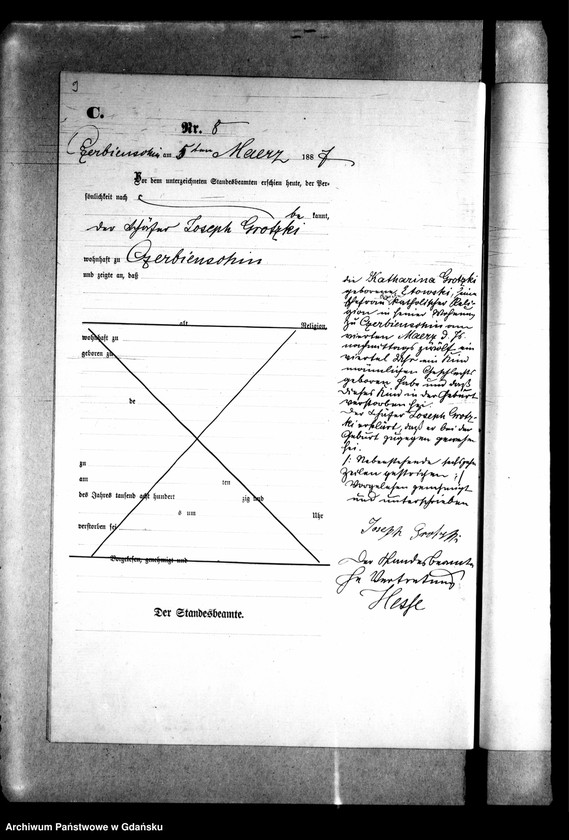 C.
Nr. 8
Czerbienschin am 5ten Maerz 1887
Vor dem unterzeichneten Standesbeamten erschien heute, der Per-
sönlichkeit nach
be kannt,
der Schäfer Joseph Grotzki
wohnhaft zu Czerbienschin
und zeigte an, daß
alt Religion,
wohnhaft zu
geboren zu
de
zu
am ten
des Jahres tausend acht hundert zig und
um Uhr
verstorben sei
Vorgelesen, genehmigt und
Der Standesbeamte.
die Katharina Grotzki
geborene, seine
Ehefrau katholischer Reli-
gion in seiner Wohnung
zu Czerbienschin am
vierten Maerz d. Js.
nachmittags zwölf ein
viertel Uhr ein Kind
männlichen Geschlechts
geboren habe und daß
dieses Kind in der Geburt
verstorben sei.
Der Schäfer Joseph Grotz-
ki erklärt, daß er bei der
Geburt zugegen gewesen
sei.
Nebenstehende
Zeilen gestrichen
Vorgelesen genehmigt
und unterschrieben
Joseph Grotzki
Der Standesbeamte
In Vertretung
Hesse
Archiwum Państwowe w Gdańsku